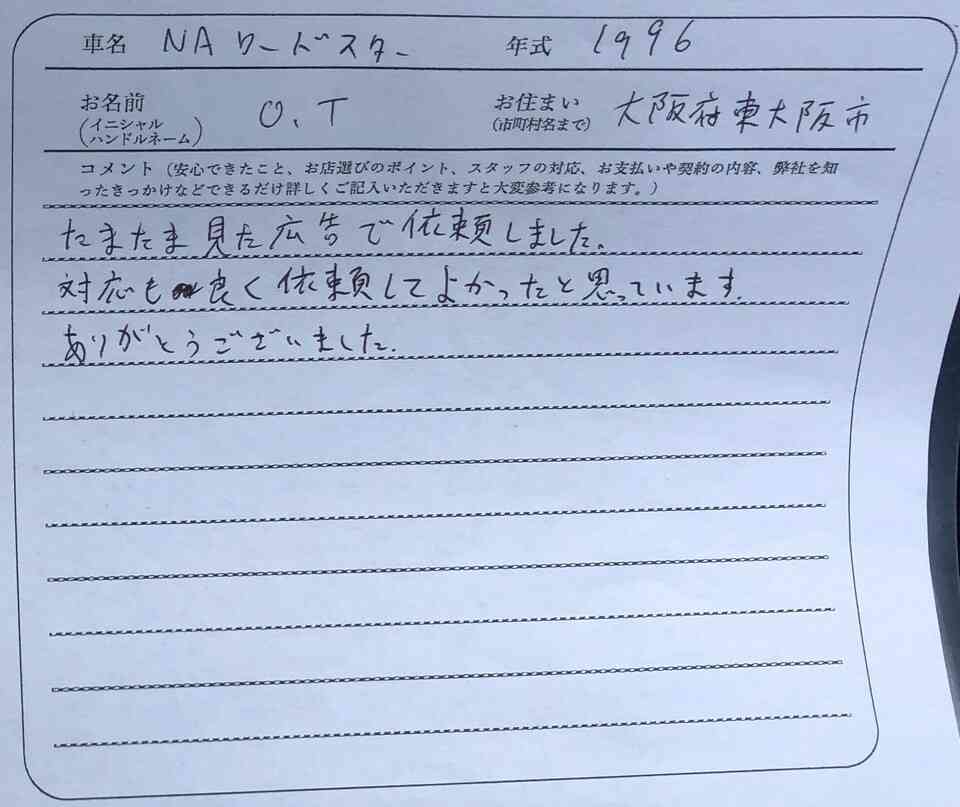 車名 NA ロードスター 年式 1996
お名前 (イニシャル ハンドルネーム) O.T お住まい (市町村名まで) 大阪府東大阪市
コメント（安心できたこと、お店選びのポイント、スタッフの対応、お支払いや契約の内容、弊社を知
ったきっかけなどできるだけ詳しくご記入いただきますと大変参考になります。）
たまたま見た広告で依頼しました。
対応も良く依頼してよかったと思っています。
ありがとうございました。